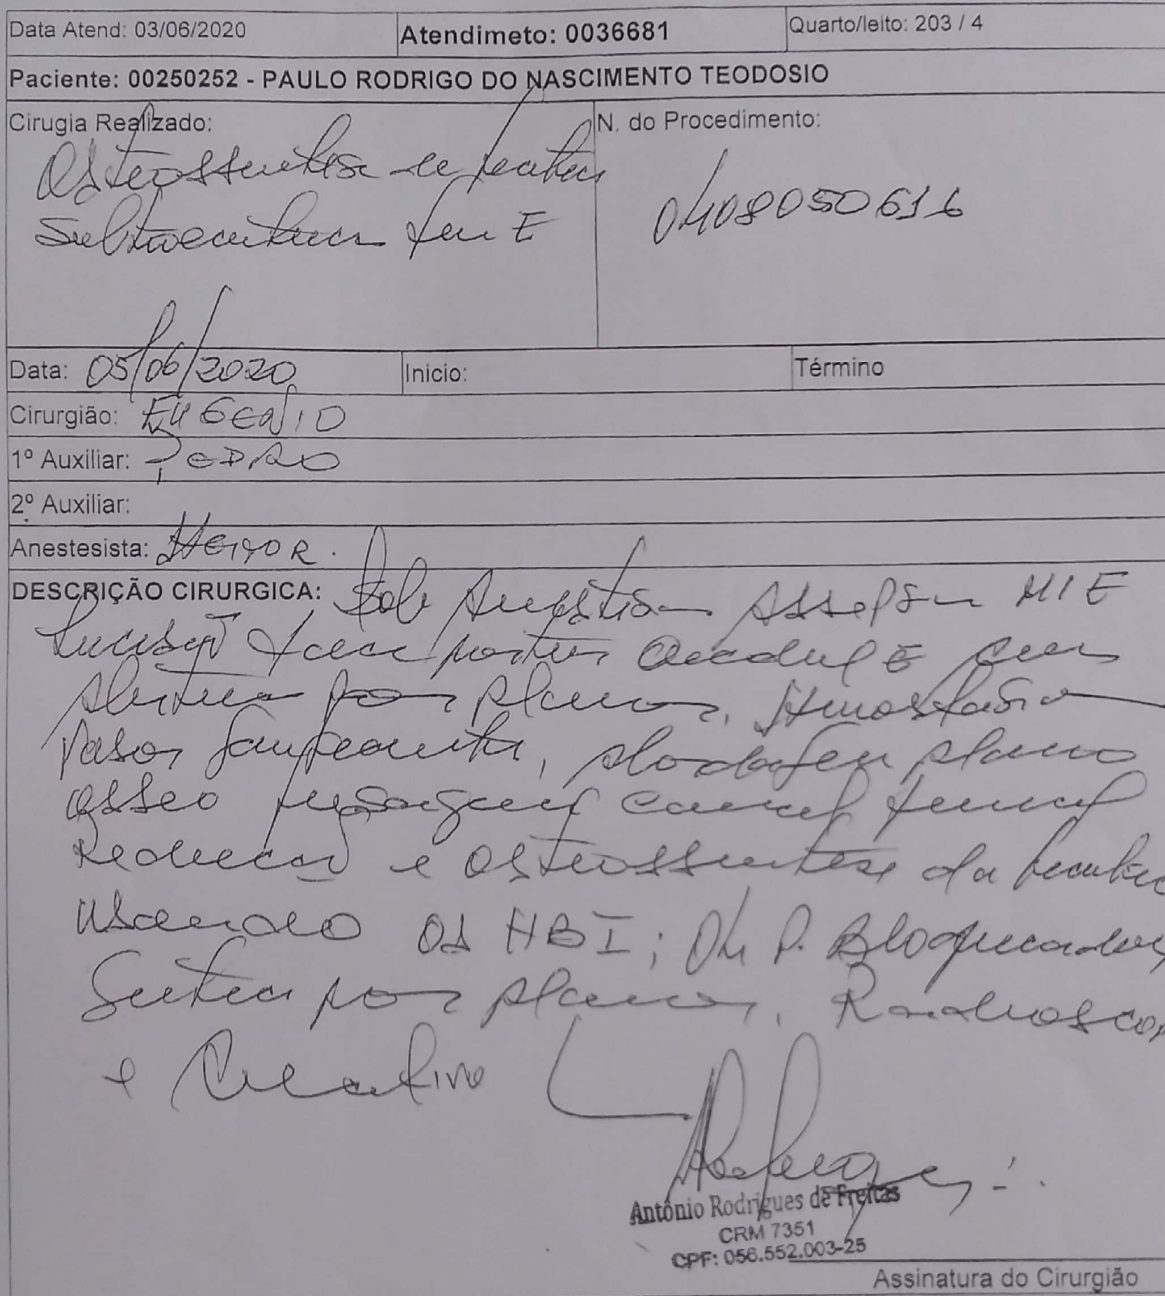 Data Atend: 03/06/2020 Atendimeto: 0036681 Quarto/leito: 203 / 4
Paciente: 00250252 - PAULO RODRIGO DO NASCIMENTO TEODOSIO
Cirugia Realizado: N. do Procedimento:
Osteossintese de fratura
Subtrocanterica fem E 0408050616
Data: 05/06/2020 Inicio: Término
Cirurgião: EUGENIO
1º Auxiliar: PEDRO
2º Auxiliar:
Anestesista: HEITOR.
DESCRIÇÃO CIRURGICA: Sob Anestesia Assepsia MIE
Incisão face poster quadril E com
abertura por planos, Hemostasia
vasos sangrantes, abordagem plano
osseo fresagem canal femoral
Redução e osteossintese da fratura
usando 01 HBI; 04 P. Bloqueadores
Sutura por planos, Radioscop
e Curativo
Antônio Rodrigues de Freitas
CRM 7351
CPF: 056.552.003-25
Assinatura do Cirurgião